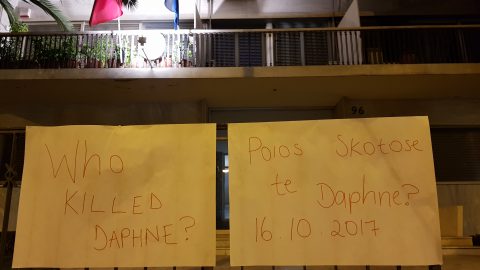 96
Who
KILLED
DAPHNE?
Poios Skotose
te Daphne?
16.10.2017